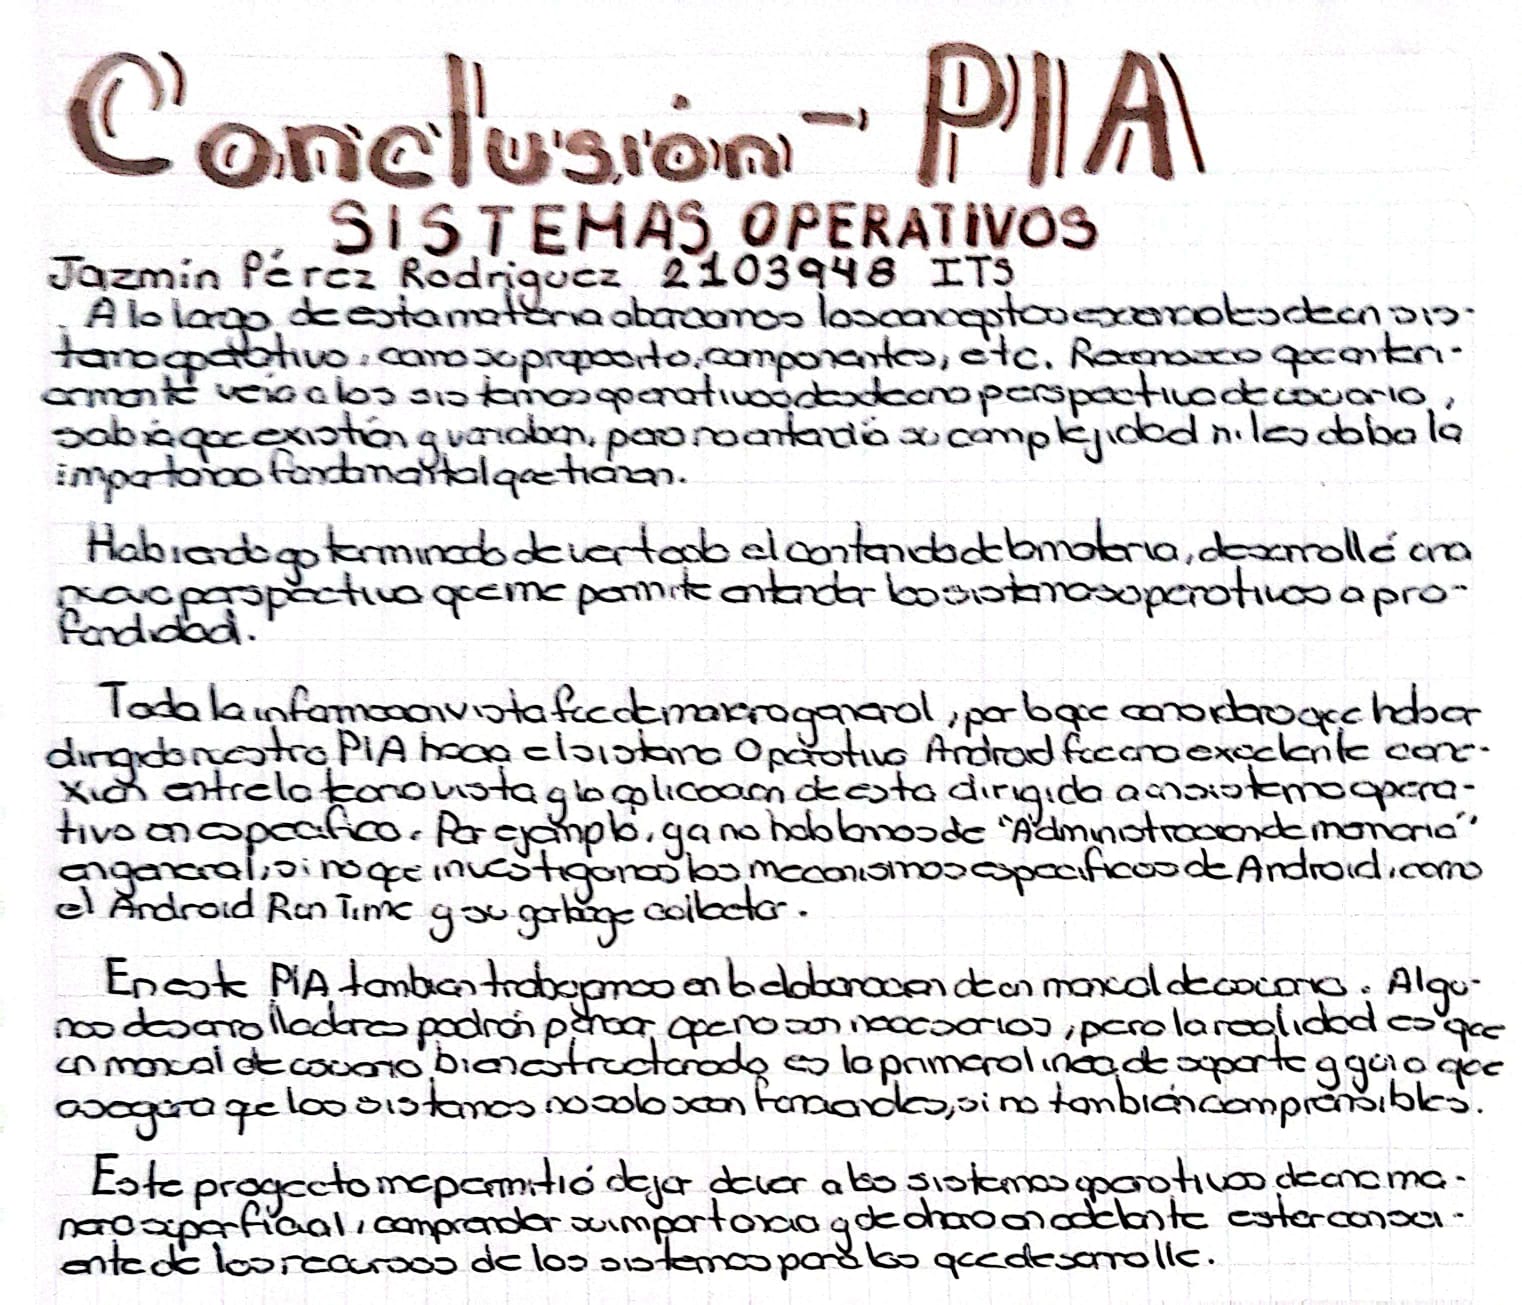 Conclusión - PIA
SISTEMAS OPERATIVOS
Jazmín Pérez Rodriguez 2103948 ITS
A lo largo de esta materia abarcamos los conceptos esenciales de un sis-
tema operativo, como su proposito, componentes, etc. Reconozco que anteri-
ormente veía a los sistemas operativos desde una perspectiva de usuario,
sabía que existían y variaban, pero no entendía su complejidad ni les daba la
importancia fundamental que tienen.
Habiendo yo terminado de ver todo el contenido de la materia, desarrollé una
nueva perspectiva que me permite entender los sistemas operativos a pro-
fundidad.
Toda la informacion vista fue de manera general, por lo que considero que haber
dirigido nuestro PIA hacia el sistema Operativo Android fue una excelente cone-
xión entre la teoria vista y la aplicacion de esta dirigida a un sistema opera-
tivo en especifico. Por ejemplo, ya no hablamos de "Administracion de memoria"
en general, si no que investigamos los mecanismos especificos de Android, como
el Android Run Time y su garbage collector.
En este PIA tambien trabajamos en la elaboracion de un manual de usuario. Algu-
nos desarrolladores podrán pensar que no son necesarios, pero la realidad es que
un manual de usuario bien estructurado es la primera linea de soporte y guia que
asegura que los sistemas no solo sean funcionales, si no también comprensibles.
Este proyecto me permitió dejar de ver a los sistemas operativos de una ma-
nera superficial, comprender su importancia y de ahora en adelante ester consci-
ente de los recursos de los sistemas para los que desarrolle.